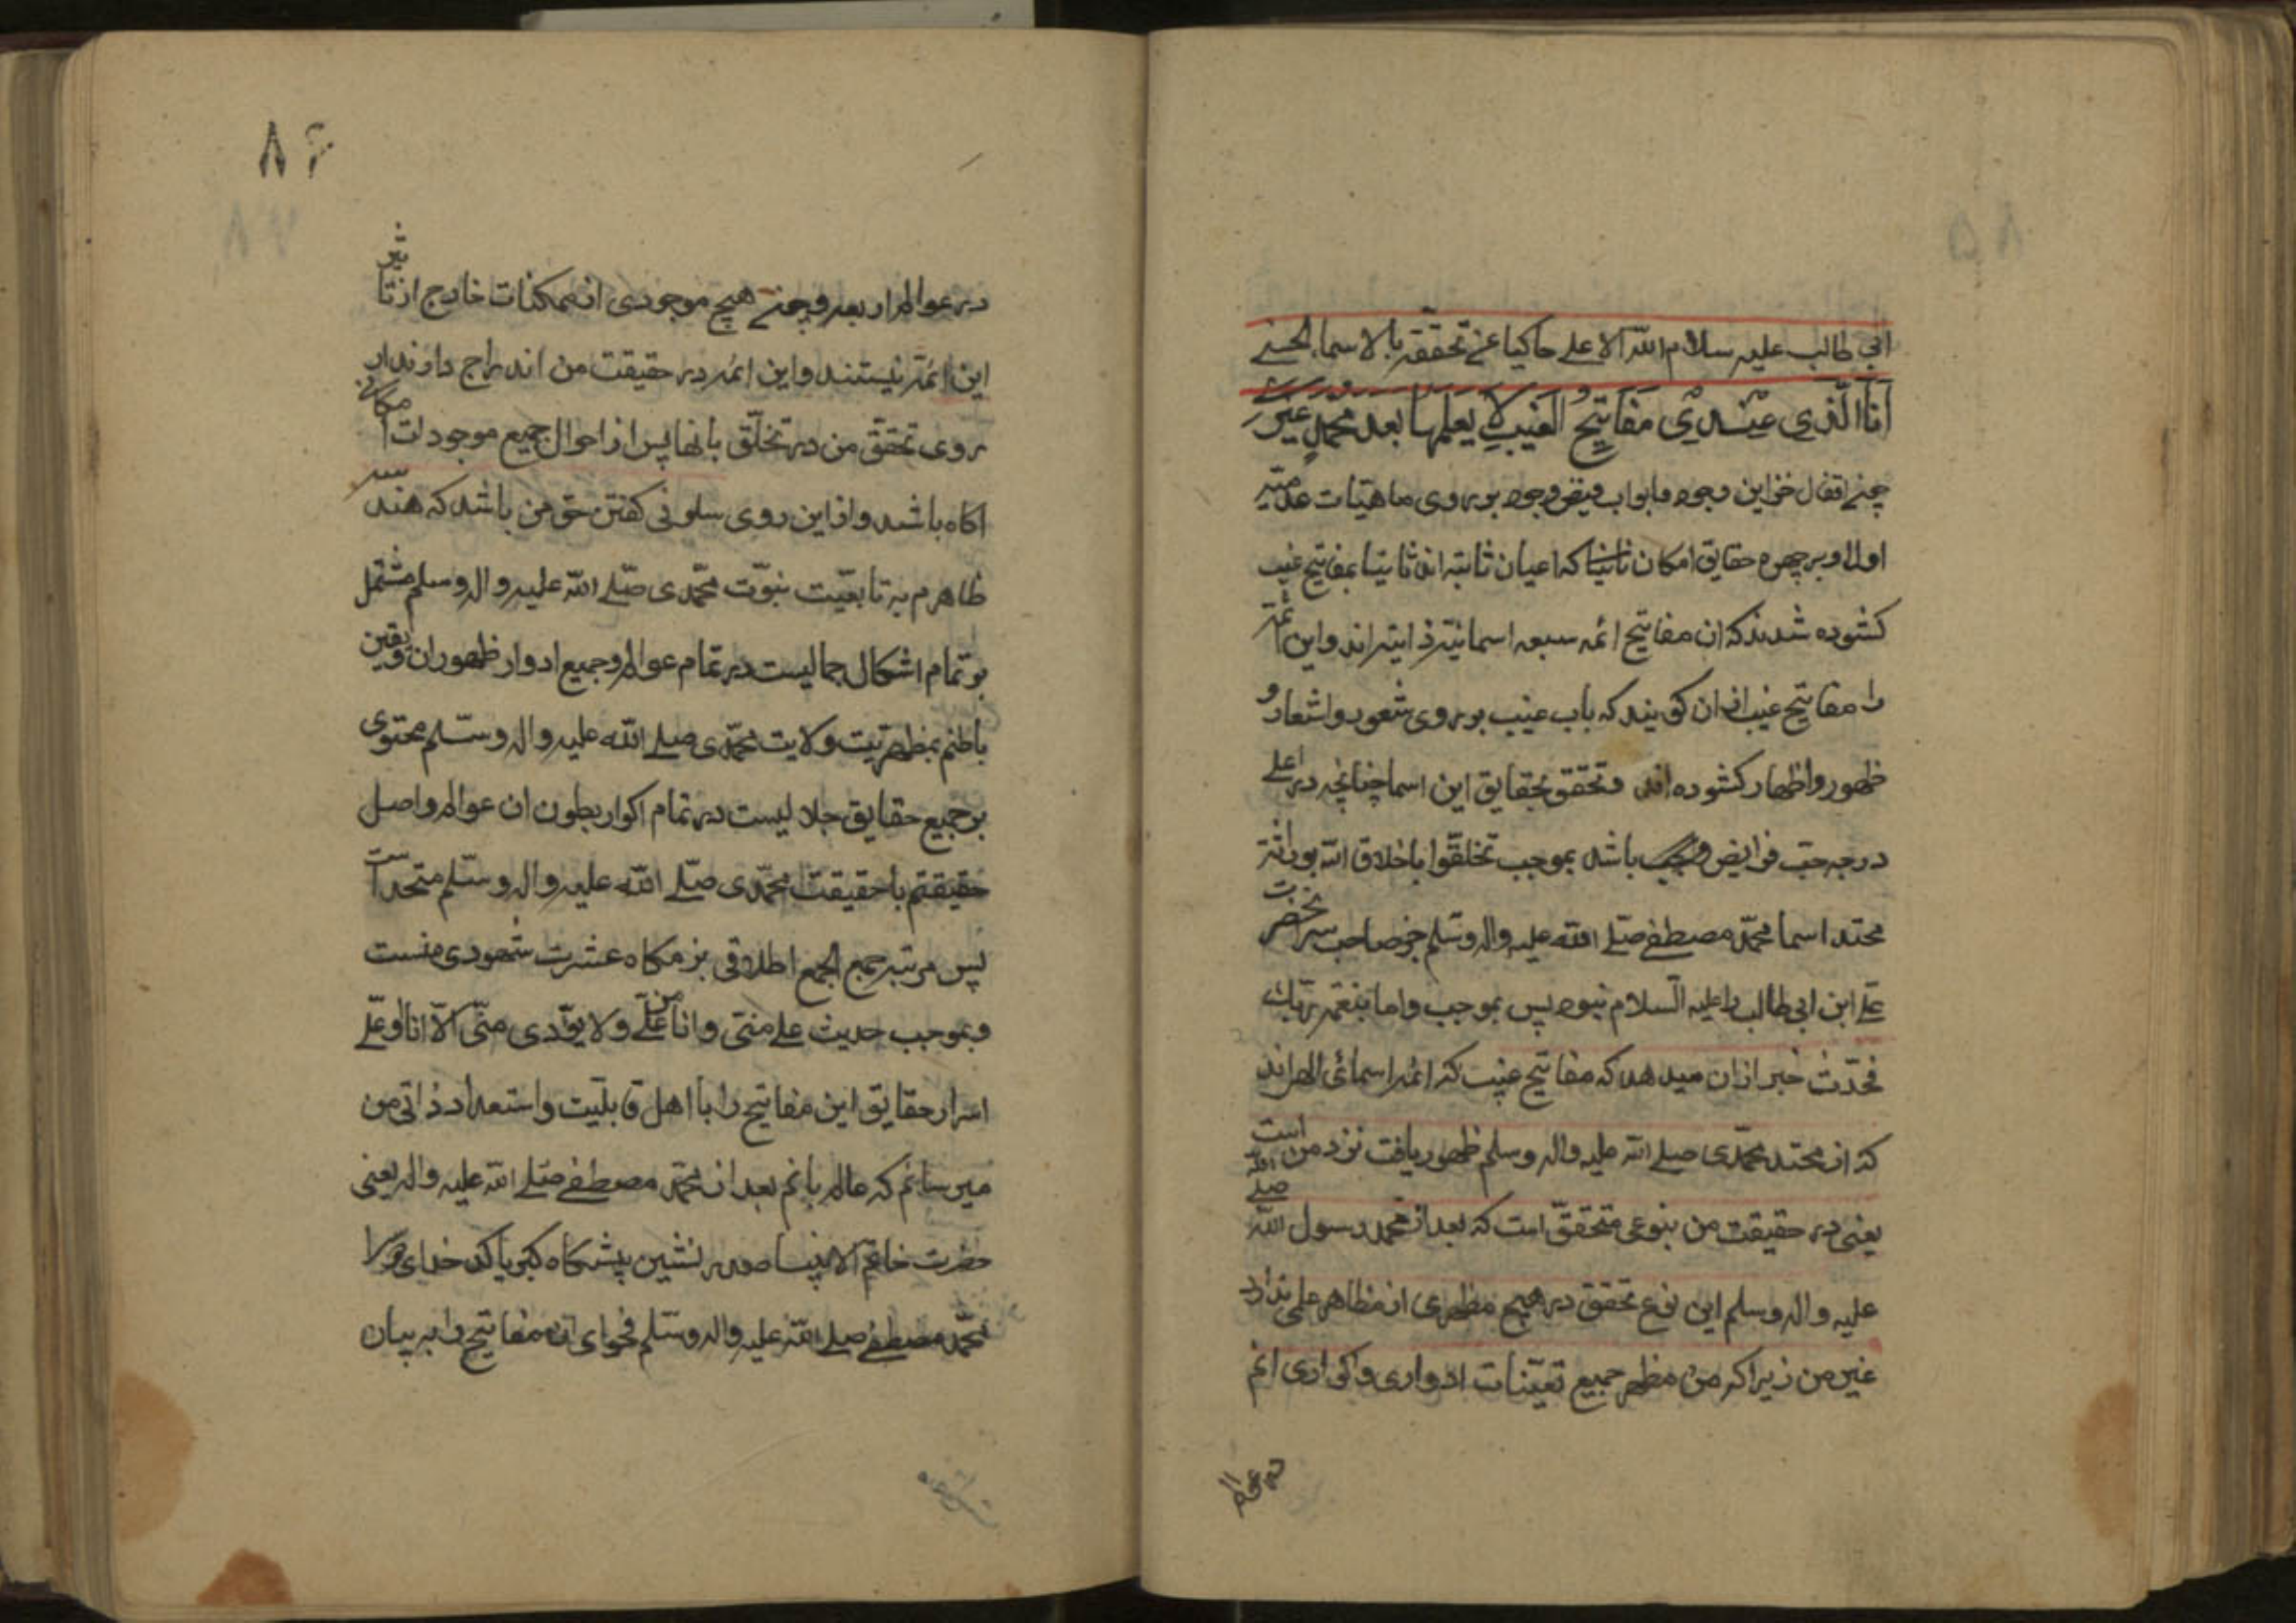 ابی طالب علیه سلام الله الاعلی حاکیا عن تحققه بالاسماء الحسنی
اَنَا الَّذِی عِنْدِیْ مَفَاتِیْحُ الغَیبِ لا یَعلَمُهَا بَعدَ مُحَمَّدٍ غَیرِی
چون اقفال خزاین وجود و ابواب فیض وجود بر روی ماهیات عدمیّه
اولا و بر چهره حقایق امکان که اعیان ثابته اند ثانیا بمفاتیح غیب
کشوده شدند که ان مفاتیح ائمه سبعه اسمائیّه ذاتیه اند و این ائمّه
را مفاتیح غیب از ان کویند که باب غیب بر روی شعور و اشعار و
ظهور و اظهار کشوده اند و تحقق بحقایق این اسما چنانچه در اعلی
درجه حتب فرایض باشد بموجب تخلقوا باخلاق الله بوراثت
محتد اسما محمّد مصطفی صلّی الله علیه واله وسلّم جز صاحب سر انحضرت
علی ابن ابی طالب را علیه السلام نبود پس بموجب واما بنعمة ربّک
فحدّث خبر از ان میدهد که مفاتیح غیب که ائمه اسمائی الهی اند
که از محتد محمّدی صلی الله علیه واله وسلم ظهور یافت نزد من است
یعنی در حقیقت من بنوعی متحققّ است که بعد از محمد رسول الله صلی الله
علیه واله وسلم این نوع تحقق در هیچ مظهری از مظاهر علمی ندارد
غیر من زیرا که من مظهر جمیع تعیّنات ادواری و اکواری ام
در عوالم
۸۶
در عوالم اربعه و چون هیچ موجودی از ممکنات خارج از تاثیر
این ائمّه نیستند و این ائمه در حقیقت من اندراج دارند از
روی تحقق من در تخلّق بانها پس از احوال جمیع موجودات امکانی
اکاه باشد و از این روی سلونی کفتن حق من باشد که هندسه
ظاهرم به تابعیّت نبوّت محمّدی صلّی الله علیه واله وسلم مشتمل
بر تمام اشکال جمالیست در تمام عوالم و جمیع ادوار ظهور ان و یقین
باطنم بمظهریّت ولایت محمّدی صلی الله علیه واله وسلّم محتوی
بر جمیع حقایق جلالیست در تمام اکوار بطون ان عوالم و اصل
حقیقتم باحقیقت محمّدی صلّی الله علیه واله وسلّم متحد است
پس مرتبه جمع الجمع اطلاقی بزمکاه عشرت شهودی منست
و بموجب حدیث علی منّی و انا من علی ولا یؤدّی منّی الّا انا او علّی
اسرار حقایق این مفاتیح را با اهل قابلیّت و استعداد ذاتی من
میرسانم که عالم بانم بعد از محمّد مصطفی صلی الله علیه واله یعنی
حضرت خاتم الانبیا صدر نشین پیشکاه کبریا که خدای
محمّد مصطفی صلی الله علیه واله وسلّم فحوای ان مفاتیح را به بیان